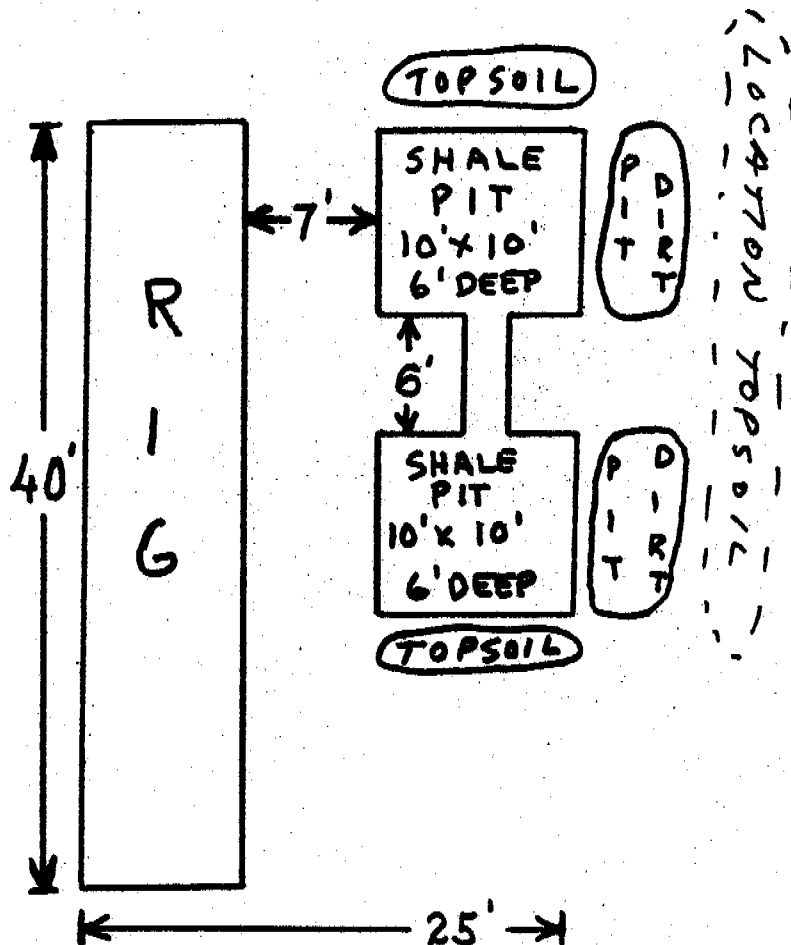 TOPSOIL
SHALE
PIT
10' X 10'
6' DEEP
PIT DIRT
LOCATION TOPSOIL
7'
RIG
6'
40'
SHALE
PIT
10' X 10'
6' DEEP
PIT DIRT
TOPSOIL
25'